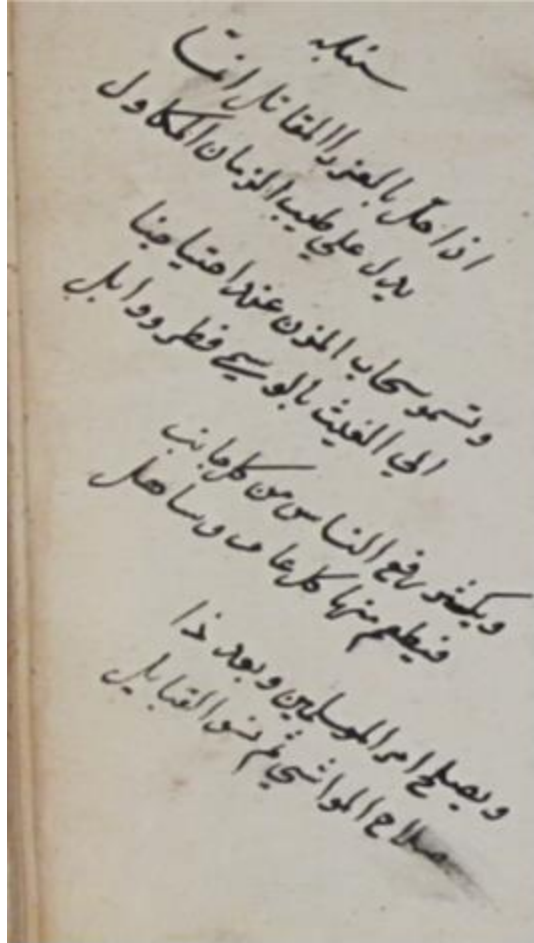 سنبله
اذا حل بالعذرا المقاتل انما
يدل علي طيب الزمان المكاول
وتسمو سحاب المزن عند احتياجنا
الي الغيث بالوسمي قطر ووابل
ويكثر رفع الناس من كل جانب
فيطعم منها كل عاف وساهل
ويصلح امر المسلمين وبعد ذا
صلاح المواشي ثم نسو القبايل